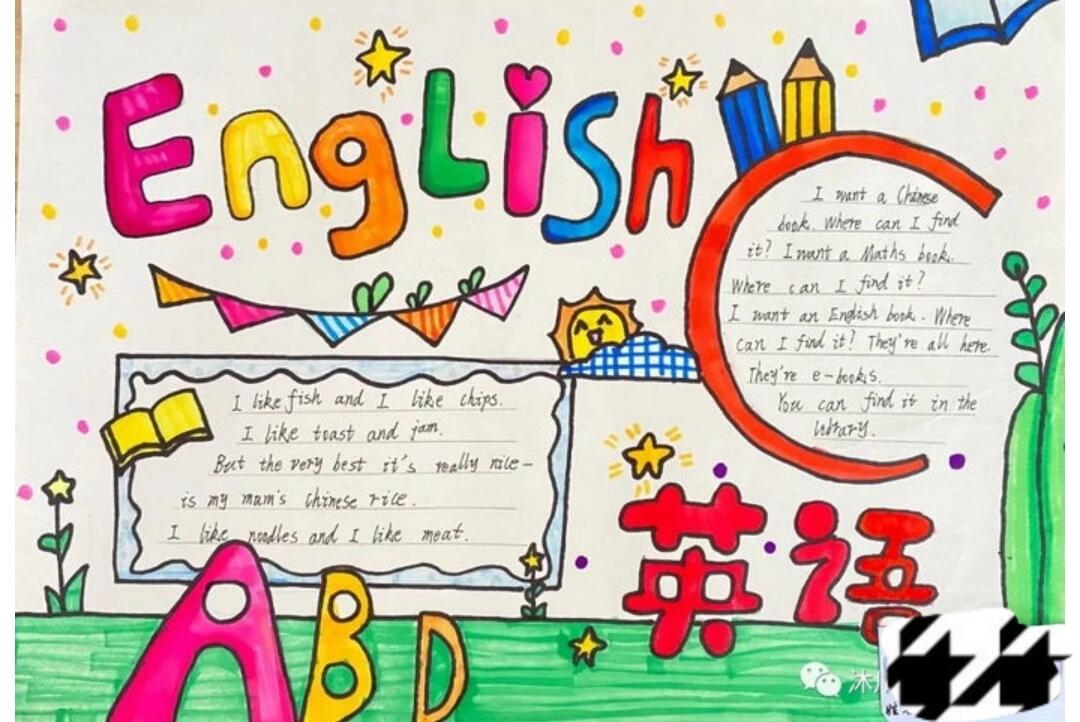 English
I want a Chinese
book. Where can I find
it? I want a Maths book.
Where can I find it?
I want an English book. Where
can I find it? They're all here.
They're e-books.
You can find it in the
library.
I like fish and I like chips.
I like toast and jam.
But the very best it's really nice-
is my mum's Chinese rice.
I like noodles and I like meat.
英语
A B D
沐